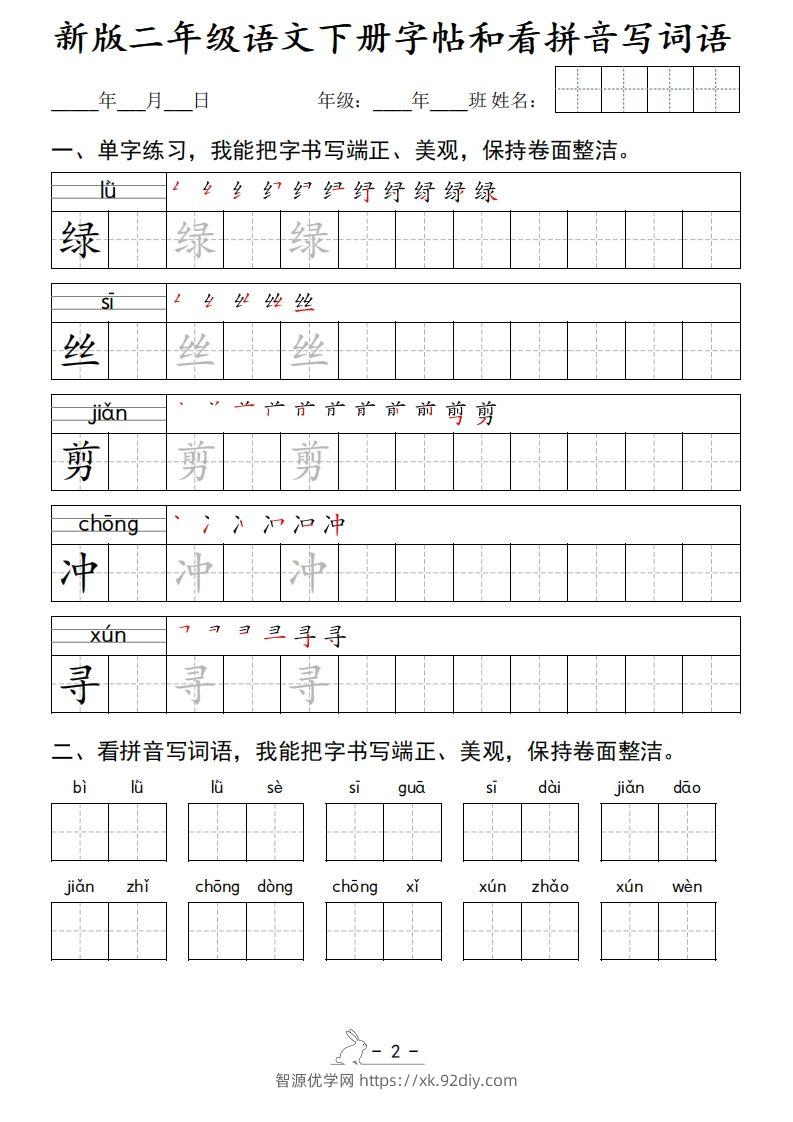 新版二年级语文下册字帖和看拼音写词语
_____年___月___日 年级：____年____班 姓名：
一、单字练习，我能把字书写端正、美观，保持卷面整洁。
lǜ
绿 绿 绿
sī
丝 丝 丝
jiǎn
剪 剪 剪
chōng
冲 冲 冲
xún
寻 寻 寻
二、看拼音写词语，我能把字书写端正、美观，保持卷面整洁。
bì lǜ lǜ sè sī guā sī dài jiǎn dāo
jiǎn zhǐ chōng dòng chōng xǐ xún zhǎo xún wèn
- 2 -
智源优学网 https://xk.92diy.com